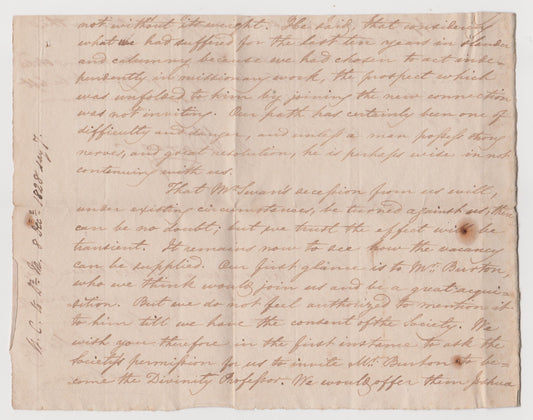 not without its weight. He said, that considering
what we had suffered for the last ten years in slander
and calumny because we had chosen to act inde-
pendently in missionary work, the prospect which
was unfolded to him by joining the new connection
was not inviting. Our path has certainly been one of
difficulty and danger, and unless a man possess strong
nerves, and great resolution, he is perhaps wise in not
continuing with us.
That Mr. Swan's secession from us will,
under existing circumstances, be turned against us, there
can be no doubt; but we trust the effect will be
transient. It remains now to see how the vacancy
can be supplied. Our first glance is to Mr. Burton,
who we think would join us and be a great acqui-
sition. But we do not feel authorized to mention it
to him till we have the consent of the Society. We
wish you therefore in the first instance to ask the
Society's permission for us to invite Mr. Burton to be-
come the Divinity Professor. We would offer them Joshua
W. C. to Dr. 8 1828